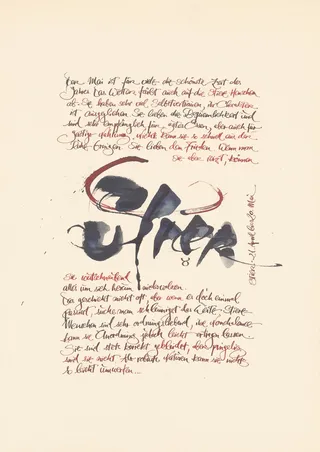 Der Mai ist für viele die schönste Zeit des
Jahres. Das Wetter färbt auch auf die Stier Menschen
ab. Sie haben sehr viel Selbstvertrauen, ihr
ist ausgeglichen. Sie lieben die Bequemlichkeit und
sind sehr empfänglich für gutes Essen, aber auch für
geistige nichts kann sie so schnell aus der
Ruhe bringen. Sie lieben den Frieden. Wenn man
sie aber reizt, können
Stier
Stier, 21. April bis 20. Mai
sie wutschnaubend
alles um sich herum niederwalzen.
Das geschieht nicht oft, aber wenn es doch einmal
passiert, suche man schleunigst das Weite. Stier
Menschen sind sehr ordnungsliebend, die
kann sie Unordnung jedoch leicht ertragen lassen.
Sie sind stets korrekt gekleidet, aber
sind sie nicht. Ihr robuste Naturen kann sie nichts
so leicht umwerfen...